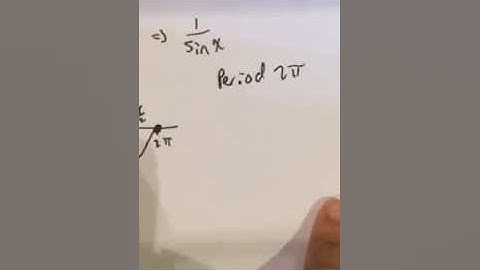 => 1/sin x
Period 2π
2π